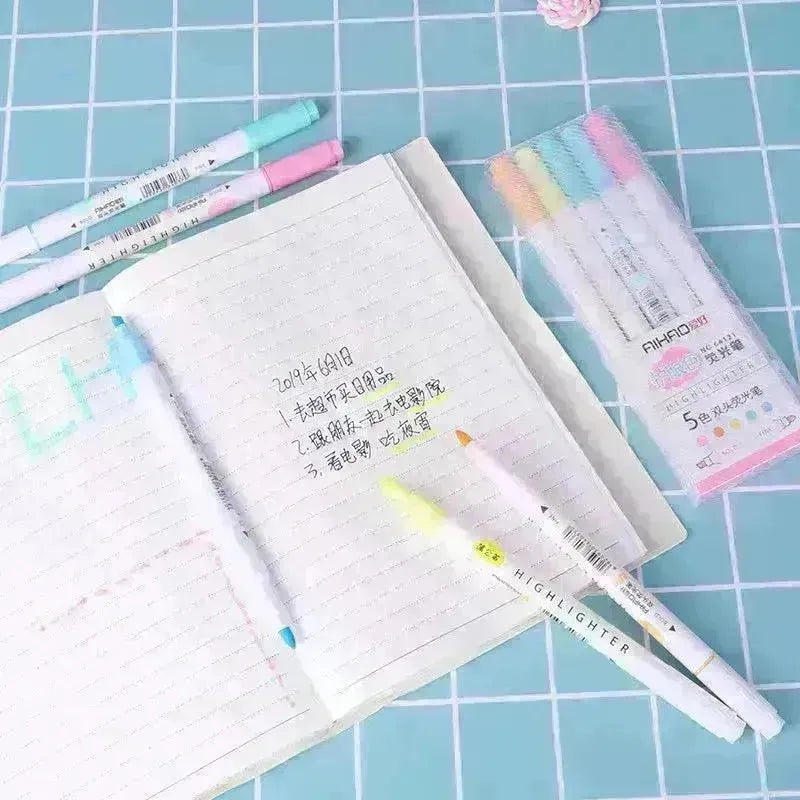 HIGHLIGHTER
HIGHLIGHTER
LH
2019年6月1日
1. 去超市买日用品
2. 跟朋友一起去电影院
3. 看电影 吃夜宵
HIGHLIGHTER
AIHAO爱好
荧光笔
HIGHLIGHTER
5色双头荧光笔